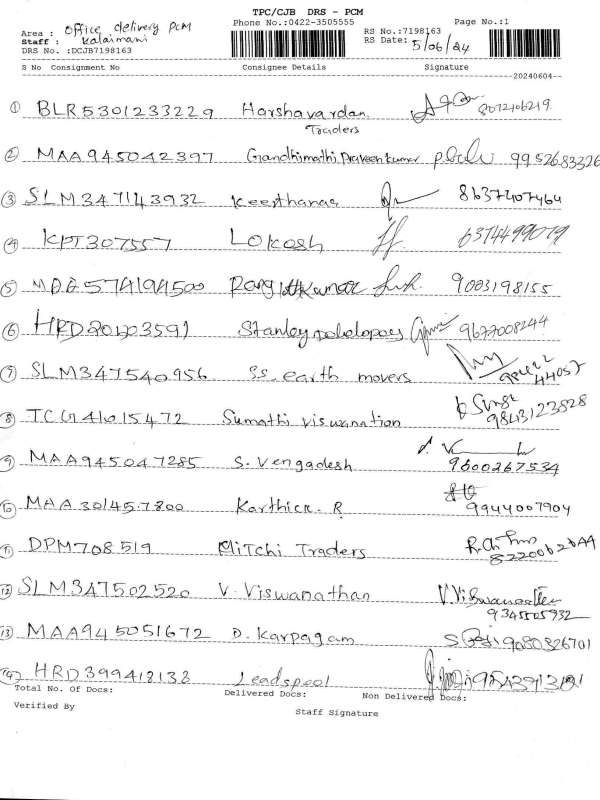 TPC/CJB DRS - PCM
Phone No.:0422-3505555 Page No.:1
Area : office delivery PCM
Staff : Kalaimani
RS No.:7198163
RS Date: 5/06/24
DRS No. :DCJB7198163
S No Consignment No Consignee Details Signature
20240604
① BLR5301233229 Harshavardan 8072106219
Traders
② MAA945042397 Gandhimathi Praveen kumar 9952683326
③ SLM347143932 Keerthanas 8637407464
④ KPT307557 Lokesh 6374499079
⑤ 574194500 9003198155
⑥ HRD201203591 Stanley 9677008244
⑦ SLM347540956 SS. earth movers
⑧ TCG41015472 Sumathi viswanation 9843123828
⑨ MAA945047285 S. Vengadesh 9600267534
⑩ MAA301457800 Karthick. R 9944007904
⑪ DPM708519 Mitchi Traders
⑫ SLM347502520 V. Viswanathan V. Viswanathan
9345505932
⑬ MAA945051672 D. Karpagam 9080326701
⑭ HRD399412132 Leadspeol
Total No. Of Docs: Delivered Docs: Non Delivered Docs:
Verified By Staff Signature